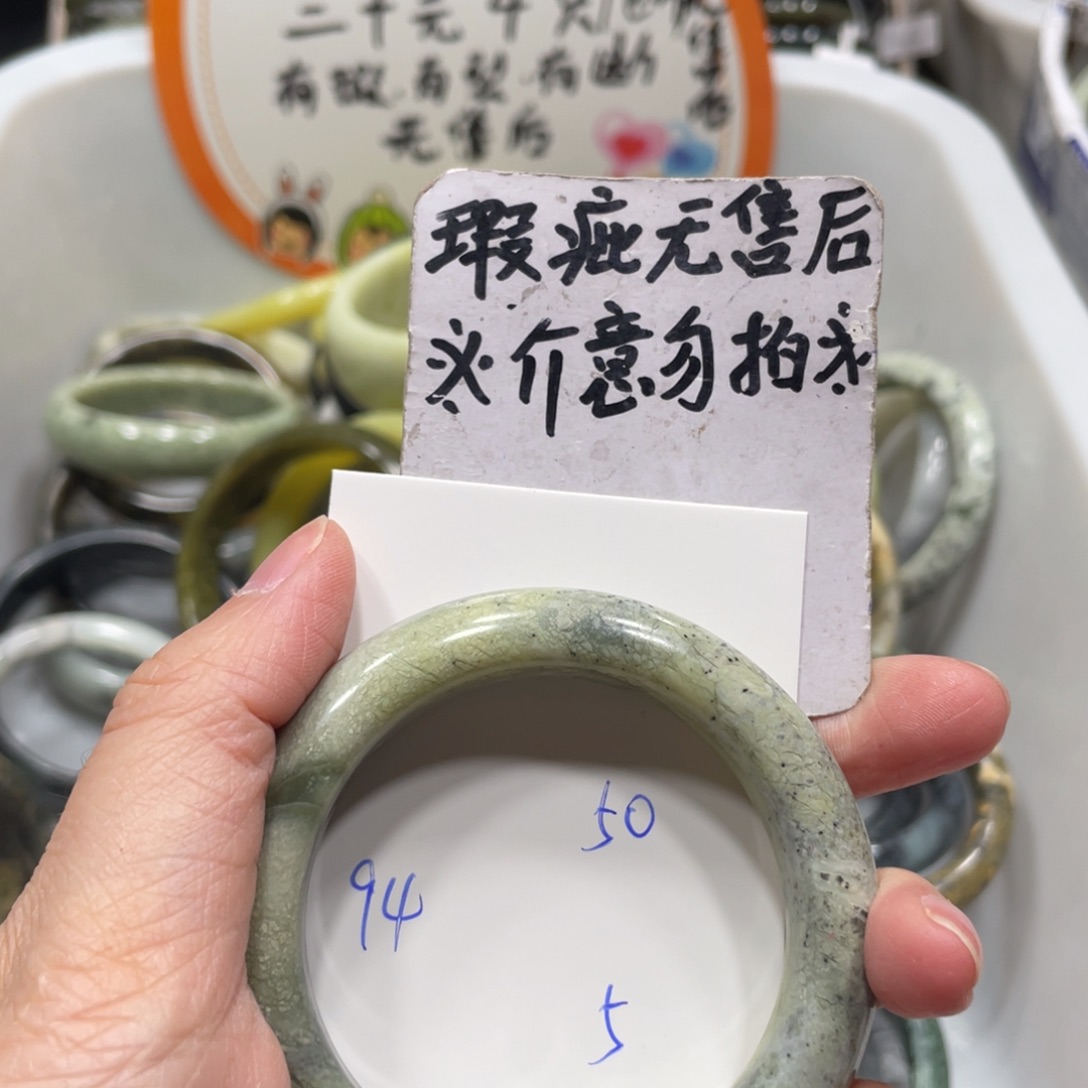 二十元
有纹.有裂.有断
无售后
瑕疵无售后
※介意勿拍※
50
94
5